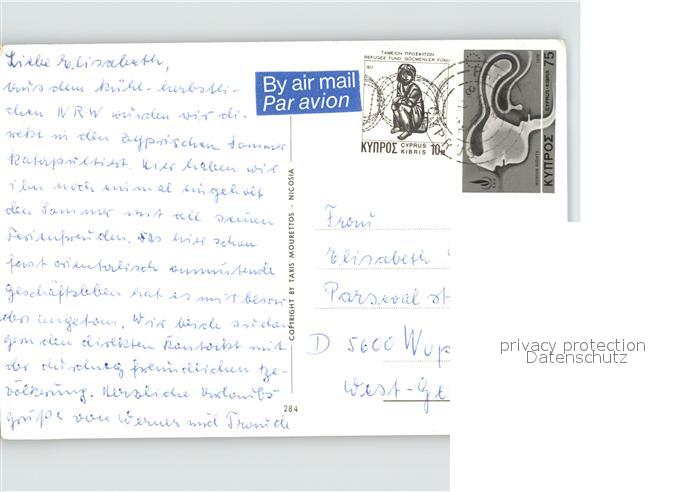 Liebe Elisabeth,
aus dem kühl-herbstli-
chen NRW wurden wir di-
rekt in den zyprischen Sommer
katapultiert. Hier haben wir
ihn noch einmal eingeholt
den Sommer mit all seinen
Ferienfreuden. Das hier schon
fast orientalisch anmutende
Geschäftsleben hat es mir beson
ders angetan. Wir beide
gen den direkten Kontakt mit
der durchweg freundlichen Be-
völkerung. Herzliche Urlaubs
grüße von Werner und
By air mail
Par avion
ΤΑΜΕΙΟΝ ΠΡΟΣΦΥΓΩΝ
REFUGEE FUND GÖÇMENLER FONU
1977
ΚΥΠΡΟΣ CYPRUS KIBRIS 10M
ΚΥΠΡΟΣ CYPRUS-KIBRIS 75
COPYRIGHT BY TAKIS MOURETTOS - NICOSIA
284
Frau
Elisabeth
Parseval st
D 5600 Wup
West-Ge
privacy protection
Datenschutz